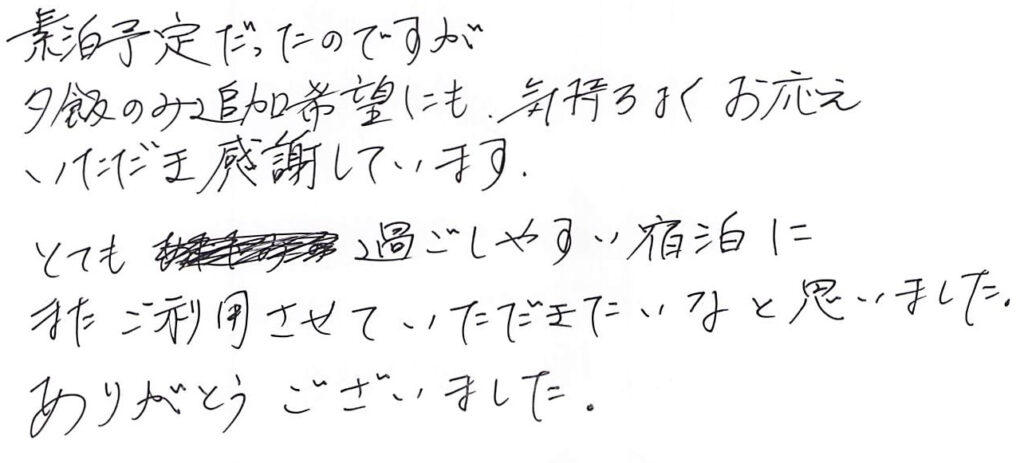 素泊予定だったのですが
夕飯のみ追加希望にも、気持ちよくお応え
いただき感謝しています。
とても過ごしやすい宿泊に
またご利用させていただきたいなと思いました。
ありがとうございました。